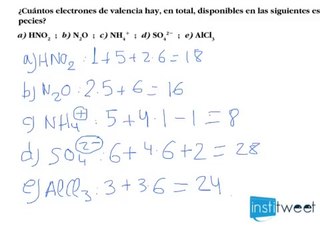 ¿Cuántos electrones de valencia hay, en total, disponibles en las siguientes es
pecies?
a) HNO₂ ; b) N₂O ; c) NH₄⁺ ; d) SO₄²⁻ ; e) AlCl₃
a) HNO₂ : 1+5+2·6=18
b) N₂O : 2·5+6=16
c) NH₄⁺ : 5+4·1-1=8
d) SO₄²⁻ : 6+4·6+2=28
e) AlCl₃ : 3+3·6=24
institweet